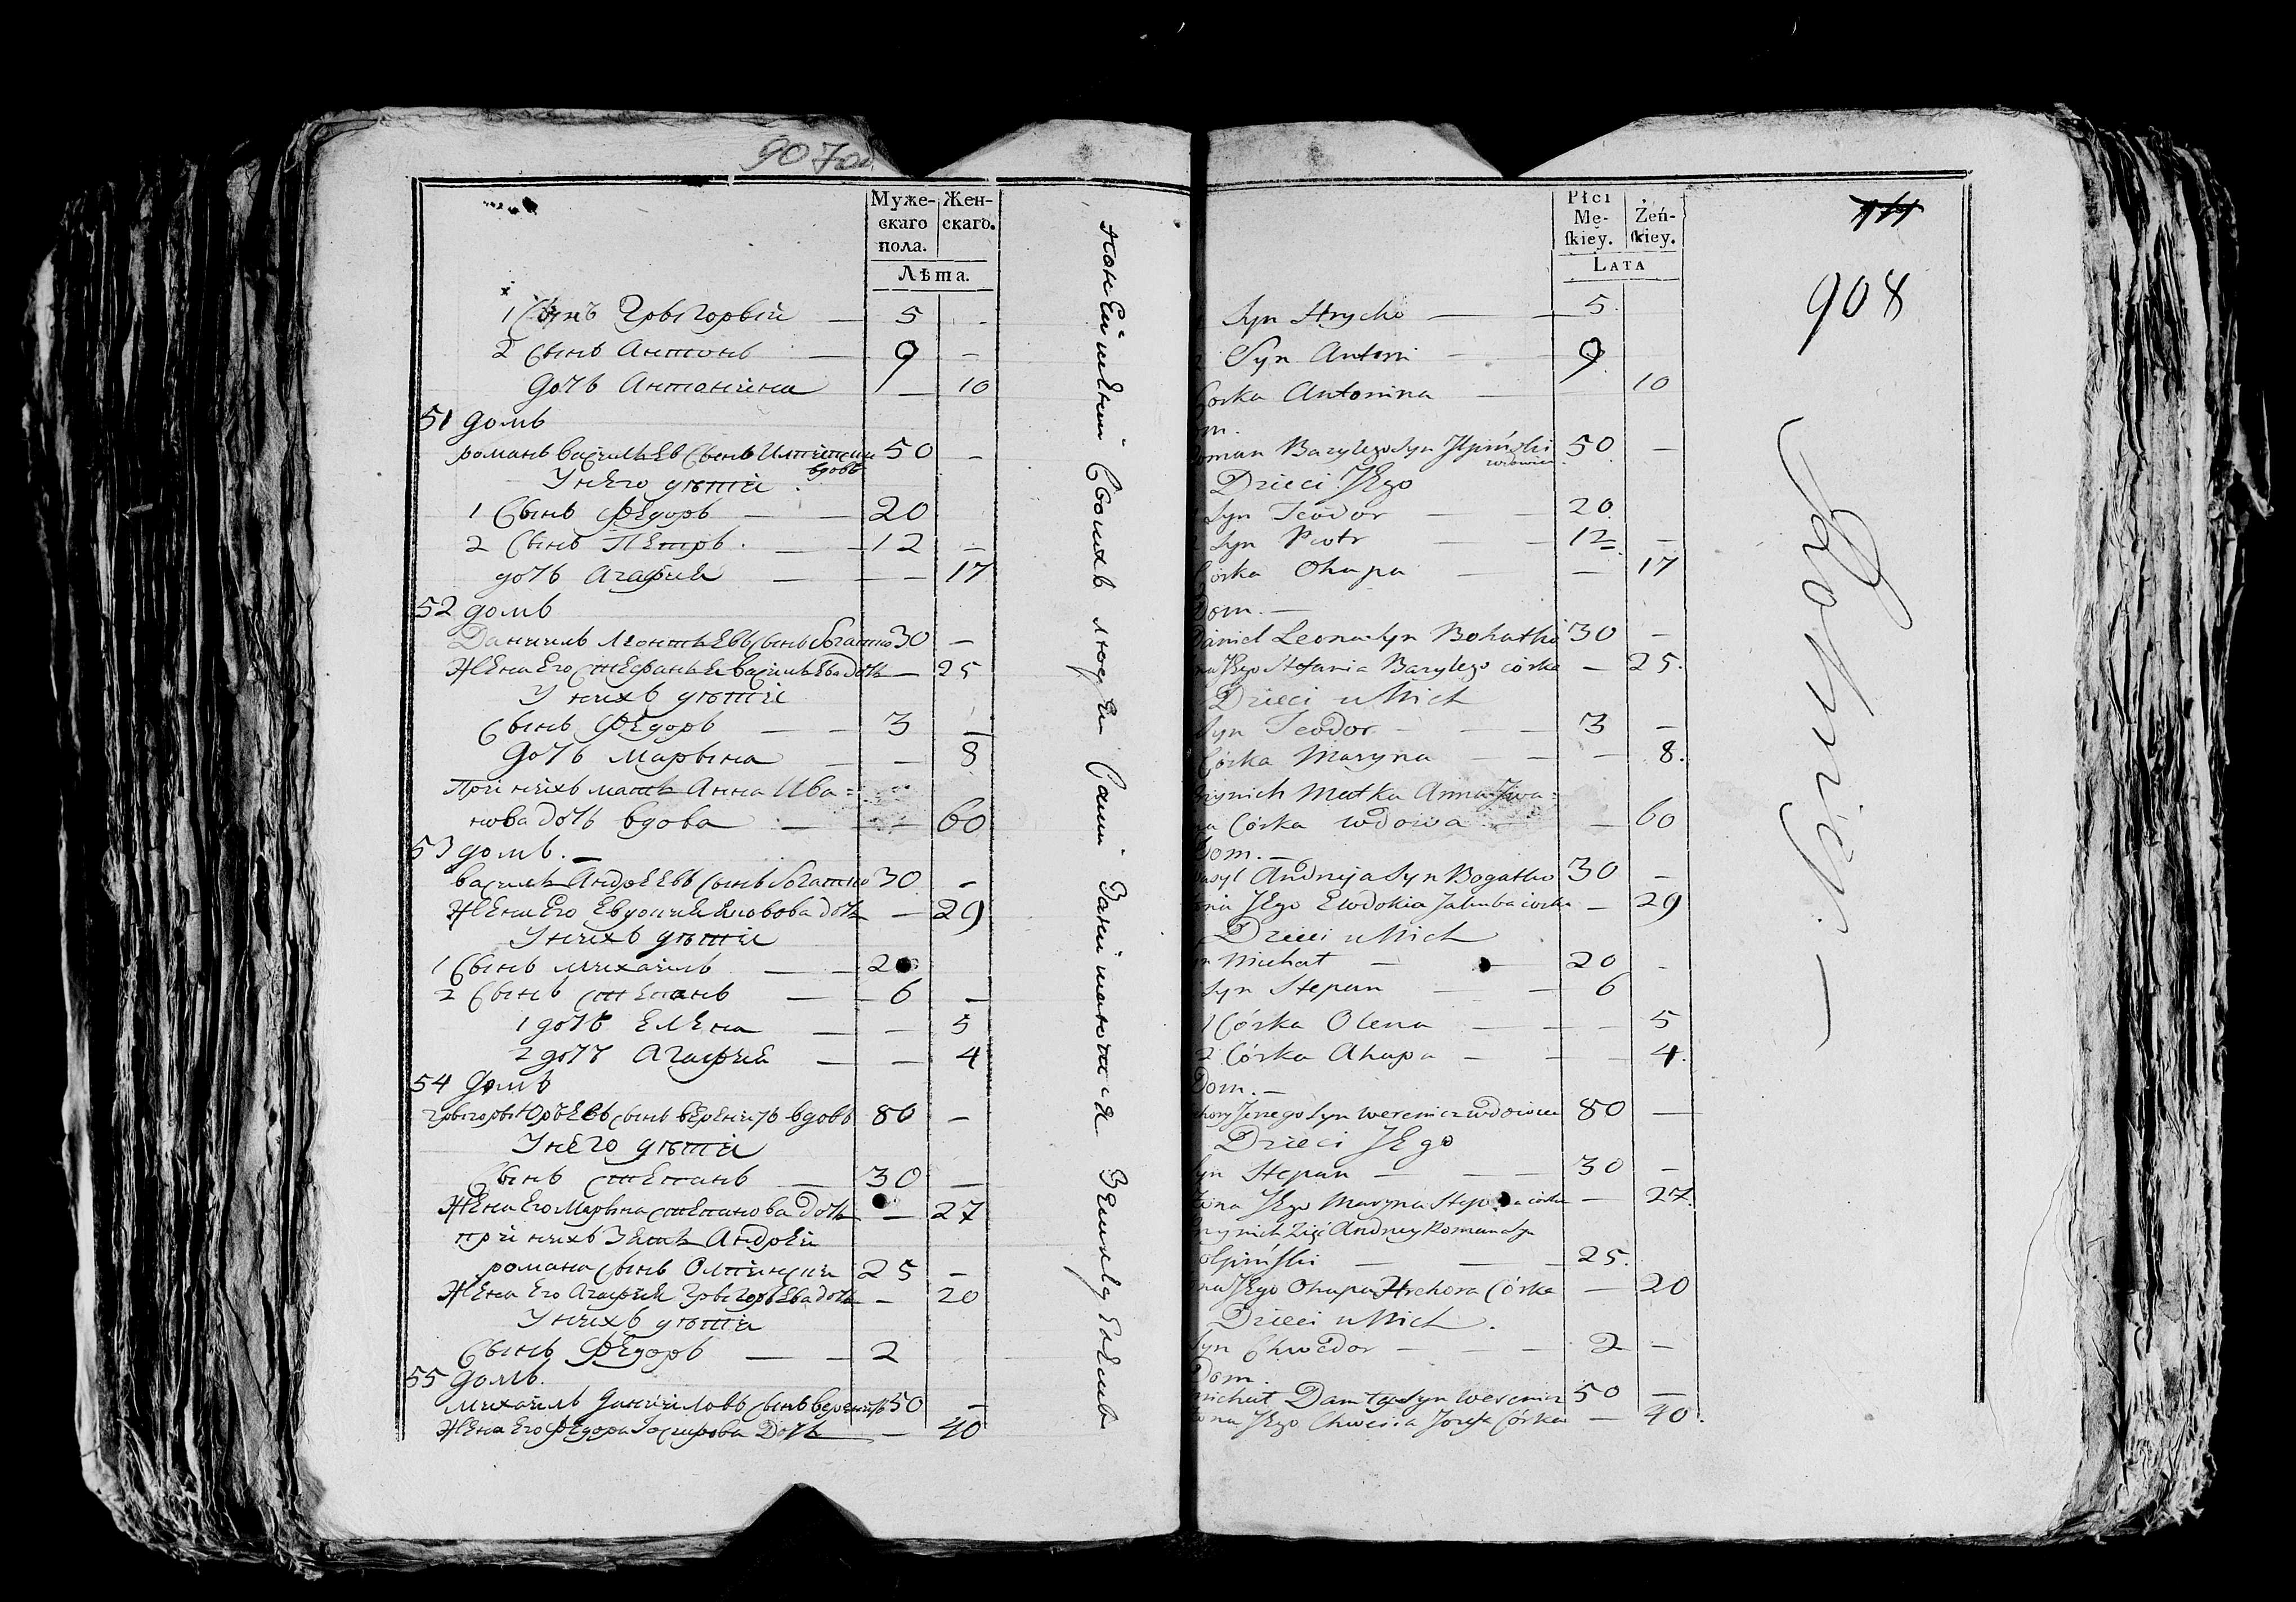 907об
Муже-
скаго
пола.
Жен-
скаго.
Лѣта.
1 Сынъ Грыгорый — 5 -
2 Сынъ Антонъ — 9 —
дочь Антонина — 10
51 домъ
романъ васильев Сынъ 50 -
вдовъ
У него дѣти
1 Сынъ Федоръ — — 20
2 Сынъ Петръ — 12 —
дочь Агафия — — — 17
52 домъ
Даниилъ Леонтьевъ Сынъ Богатко 30 —
Жена Его Стефанья васильева Дочь — 25
У нихъ дѣти
Сынъ Федоръ — — 3 —
дочь Марына — — 8
При нихъ мать Анна Ива=
нова дочь вдова — — 60
53 домъ. —
василь Андреевъ Сынъ Богатко 30 -
Жена Его Евдокия дочь — 29
У нихъ дѣти
1 Сынъ михаилъ — — 20
2 Сынъ Степанъ — — 6 —
1 дочь Елена — — 5
2 дочь Агафия — — 4
54 Домъ
Грыгоры Юрьевъ Сынъ вереничъ вдовъ 80 —
У него дѣти
Сынъ Степанъ — 30 —
Жена Его Марына Степанова Дочь — 27
при нихъ Зять Андрей
романа Сынъ Олпински 25 —
Жена Его Агафия Грыгорьева дочь — 20
У нихъ дѣти
Сынъ Федоръ — — 2
55 домъ.
михаилъ даниловъ Сынъ вереничъ 50 —
Жена Его Федора Иосифова Дочь — 40
Своихъ людей Сами Занимаются
Płci
Mę-
ſkiey.
Żeń-
ſkiey.
LATA
908
Rolnicy. —
Syn Hrycko — — 5
Syn Antoni — 9
Corka Antonina — 10
om.
oman Bazylego Syn Ilpiński 50 —
wdowiec
Dzieci JEgo
Syn Teodor — — 20
Syn Piotr — — 12 —
Córka Ohapa — — 17
Dom. —
Daniel Leona Syn Bohatko 30 —
na JEgo Stefania Bazylego córka — 25.
Dzieci u Nich
Syn Teodor — — 3 —
Córka Maryna — — — 8.
rzy nich Matka Anna Iwa=
na Córka wdowa — — 60
Dom. —
asyl Andrzeja Syn Bogatko 30 —
ona JEgo Ewdokia Jakuba corka — 29
Dzieci u Nich
n Michał — — 20 -
Syn Stepan — — 6
1 Córka Olena — — — 5
2 Córka Ahapa — — — 4.
Dom. —
hory Jerzego Syn Werenicz wdowiec 80 —
Dzieci JEgo
Syn Stepan — — 30 —
Żona JEgo Maryna Stepana córka — 27
rzy nich Zięć Andrzey Romana Syn
olpiński — — 25.
na JEgo Ohapa Hrehora Córka — 20
Dzieci u Nich.
Syn Chwedor — — 2 —
Dom.
ichał Daniła Syn Werenicz 50 —
ona JEgo Chwesia Jozefa Córka — 40.